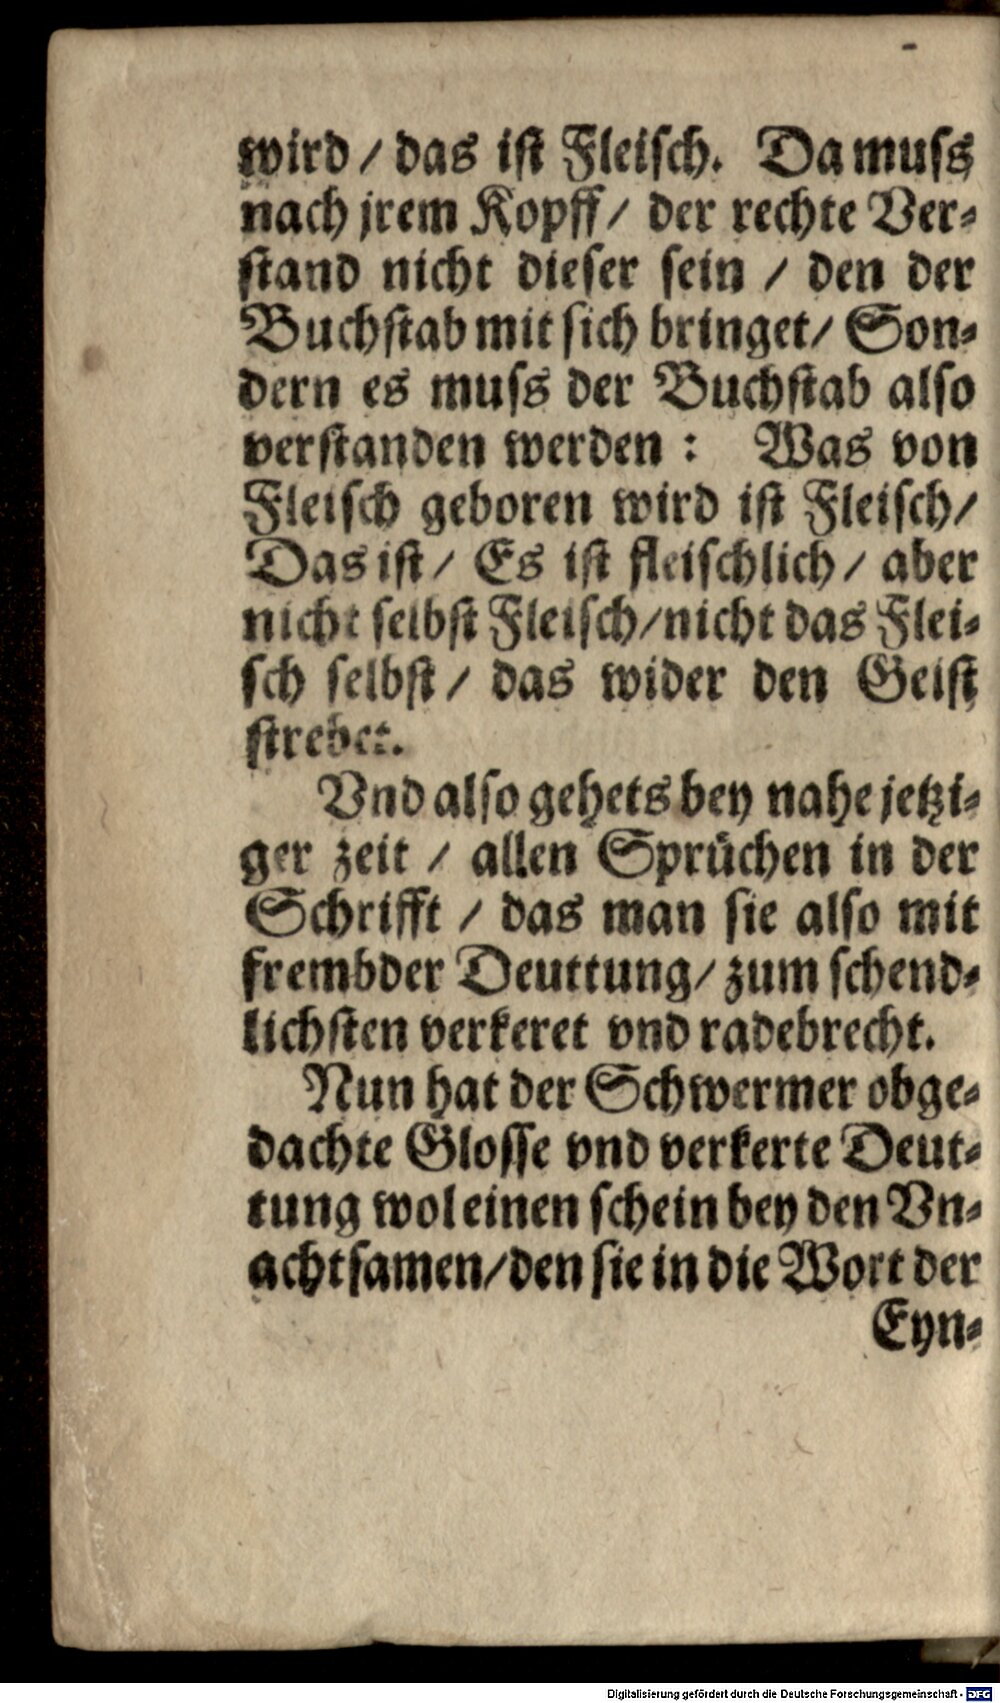 wird / das ist Fleisch. Da muss
nach jrem Kopff / der rechte Ver-
stand nicht dieser sein / den der
Buchstab mit sich bringet / Son-
dern es muss der Buchstab also
verstanden werden : Was von
Fleisch geboren wird ist Fleisch /
Das ist / Es ist fleischlich / aber
nicht selbst Fleisch / nicht das Flei-
sch selbst / das wider den Geist
strebet.
Vnd also gehets bey nahe jetzi-
ger zeit / allen Sprüchen in der
Schrifft / das man sie also mit
frembder Deuttung / zum schend-
lichsten verkeret vnd radebrecht.
Nun hat der Schwermer obge-
dachte Glosse vnd verkerte Deut-
tung wol einen schein bey den Vn-
achtsamen / den sie in die Wort der
Eyn-
Digitalisierung gefördert durch die Deutsche Forschungsgemeinschaft - DFG